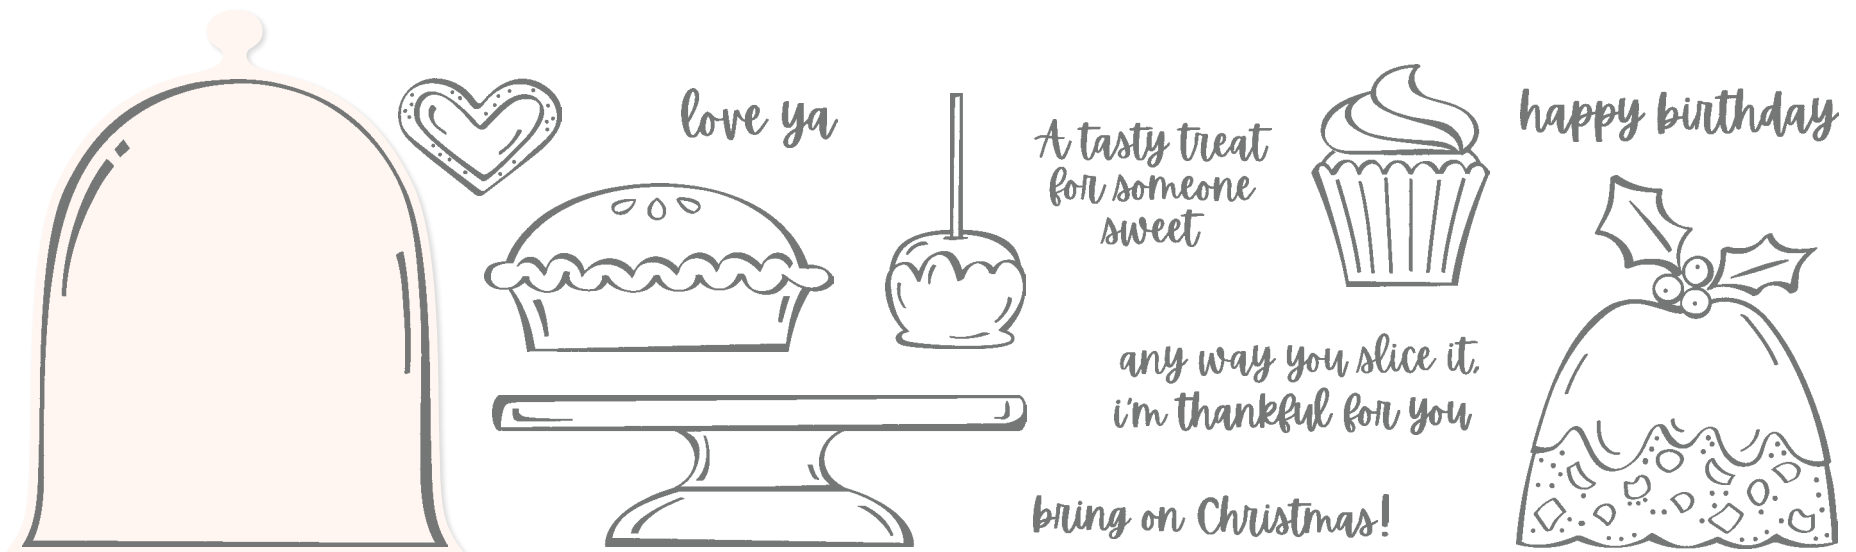 love ya
A tasty treat
for someone
sweet
happy birthday
any way you slice it,
i'm thankful for you
bring on Christmas!